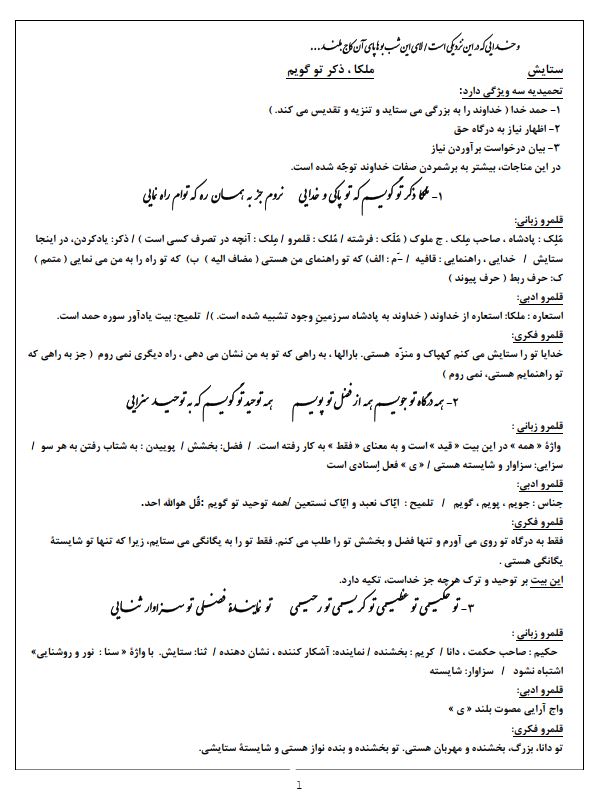 و خدایی که در این نزدیکی است / لای این شب بوها پای آن کاج بلند...
ستایش ملکا ، ذکر تو گویم
تحمیدیه سه ویژگی دارد:
۱- حمد خدا ( خداوند را به بزرگی می ستاید و تنزیه و تقدیس می کند. )
۲- اظهار نیاز به درگاه حق
۳- بیان درخواست برآوردن نیاز
در این مناجات، بیشتر به برشمردن صفات خداوند توجّه شده است.
۱- ملکا ذکر تو گویم که تو پاکی و خدایی نروم جز به همان ره که توام راه نمایی
قلمرو زبانی:
مَلِک : پادشاه ، صاحب مِلک . ج ملوک ( مَلَک : فرشته / مُلک : قلمرو / مِلک : آنچه در تصرف کسی است ) / ذکر: یادکردن، در اینجا
ستایش / خدایی ، راهنمایی : قافیه / ـَم : الف) که تو راهنمای من هستی ( مضاف الیه ) ب) که تو راه را به من می نمایی ( متمم )
ک: حرف ربط ( حرف پیوند )
قلمرو ادبی:
استعاره : ملکا: استعاره از خداوند ( خداوند به پادشاه سرزمینِ وجود تشبیه شده است. )/ تلمیح: بیت یادآور سوره حمد است.
قلمرو فکری:
خدایا تو را ستایش می کنم کهپاک و منزّه هستی. بارالها ، به راهی که تو به من نشان می دهی ، راه دیگری نمی روم ( جز به راهی که
تو راهنمایم هستی، نمی روم )
۲- همه درگاه تو جویم همه از فضل تو پویم همه توحید تو گویم که به توحید سزایی
قلمرو زبانی :
واژهٔ « همه » در این بیت « قید » است و به معنای « فقط » به کار رفته است. / فضل: بخشش / پوییدن : به شتاب رفتن به هر سو /
سزایی: سزاوار و شایسته هستی / « ی » فعل اِسنادی است
قلمرو ادبی:
جناس : جویم ، پویم ، گویم / تلمیح : ایّاک نعبد و ایّاک نستعین /همه توحید تو گویم :قُل هوالله احد.
قلمرو فکری:
فقط به درگاه تو روی می آورم و تنها فضل و بخشش تو را طلب می کنم. فقط تو را به یگانگی می ستایم، زیرا که تنها تو شایستهٔ
یگانگی هستی .
این بیت بر توحید و ترک هرچه جز خداست، تکیه دارد.
۳- تو حکیمی تو عظیمی تو کریمی تو رحیمی تو نمایندهٔ فضلی تو سزاوار ثنایی
قلمرو زبانی :
حکیم : صاحب حکمت ، دانا / کریم : بخشنده / نماینده: آشکار کننده ، نشان دهنده / ثنا: ستایش. با واژهٔ « سنا : نور و روشنایی»
اشتباه نشود / سزاوار: شایسته
قلمرو ادبی:
واج آرایی مصوت بلند « ی »
قلمرو فکری:
تو دانا، بزرگ، بخشنده و مهربان هستی. تو بخشنده و بنده نواز هستی و شایستهٔ ستایشی.
1